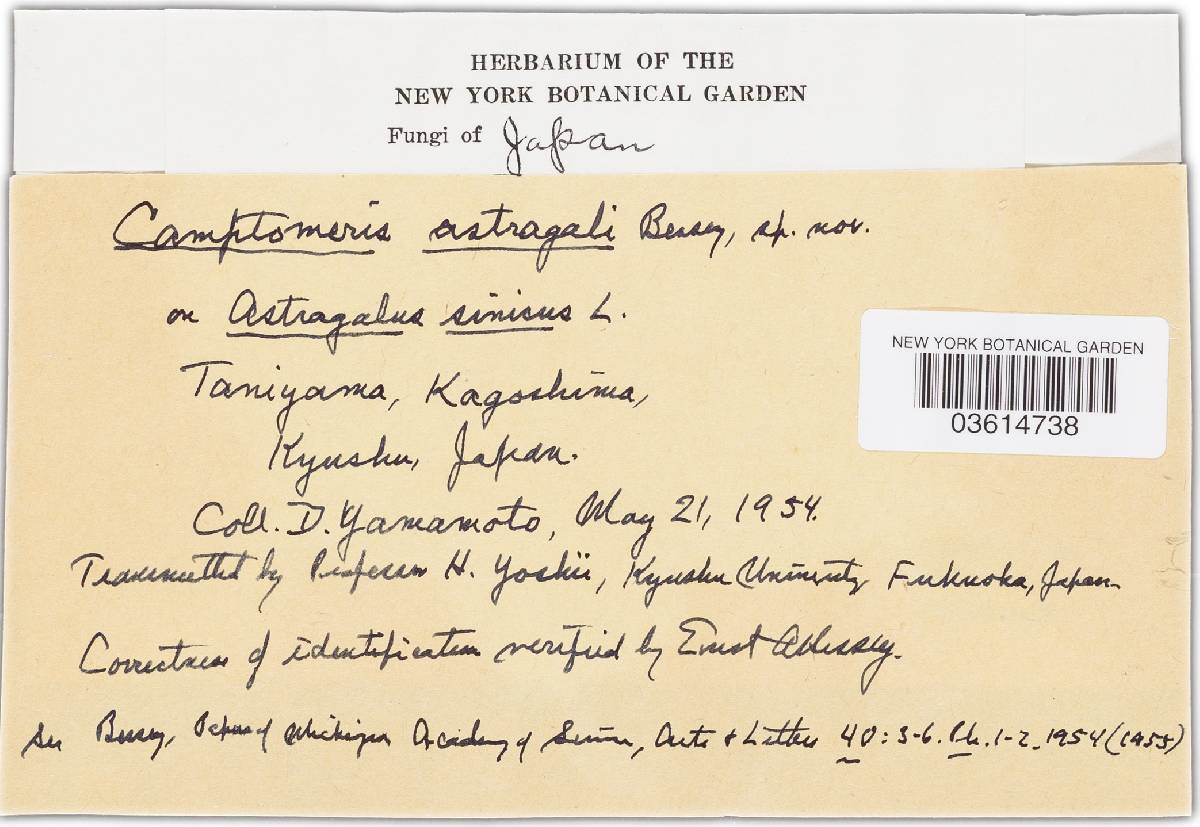 HERBARIUM OF THE
NEW YORK BOTANICAL GARDEN
Fungi of Japan
Camptomeris astragali Bessey, sp. nov.
on Astragalus sinisus L.
NEW YORK BOTANICAL GARDEN
03614738
Taniyama, Kagoshima,
Kyushu, Japan.
Coll. D. Yamamoto, May 21, 1954.
Transmitted by Professor H. Yoshii, Kyushu University Fukuoka, Japan.
Correctness of identification verified by Ernst A Bessey.
See Bessey, Papers of Michigan Academy of Science, Arts & Letters 40: 3-6. Pls. 1-2. 1954 (1955)